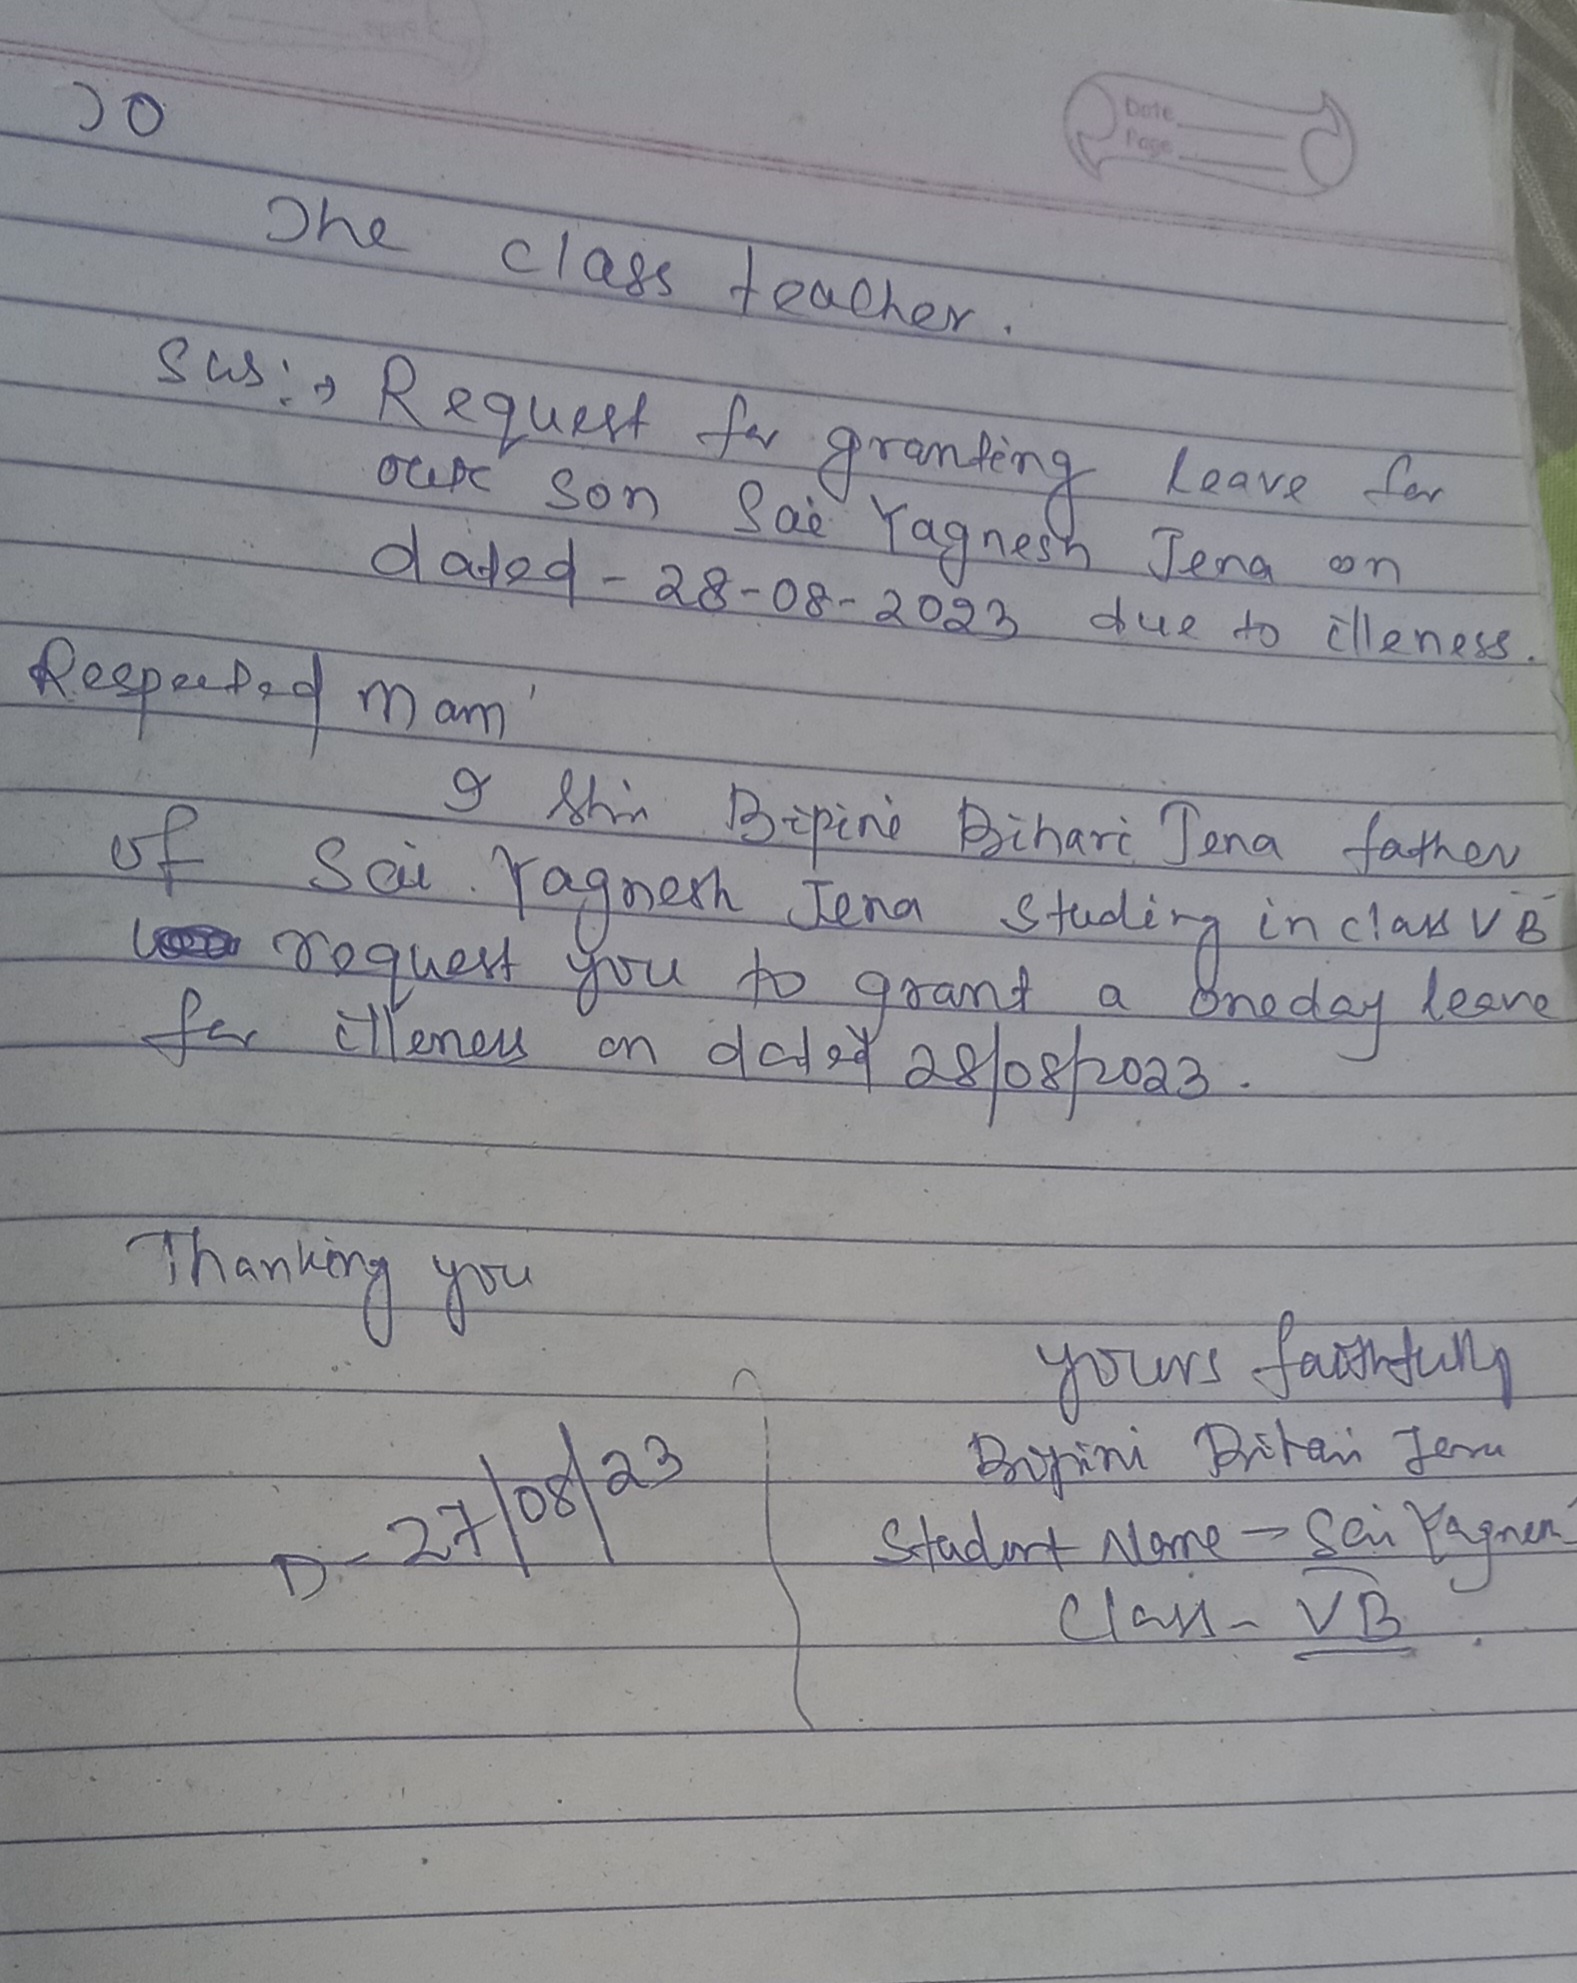 To
Date
Page
The class teacher.
Sub:→ Request for granting leave for
our son Sai Yagnesh Jena on
dated - 28-08-2023 due to illeness.
Respected Mam'
I Shri Bipini Bihari Jena father
of Sai Yagnesh Jena studing in class V B
request you to grant a oneday leave
for illeness on dated 28/08/2023.
Thanking you
yours faithfully
Bipini Bihari Jena
D - 27/08/23
Student Name → Sai Yagnesh
Class - VB